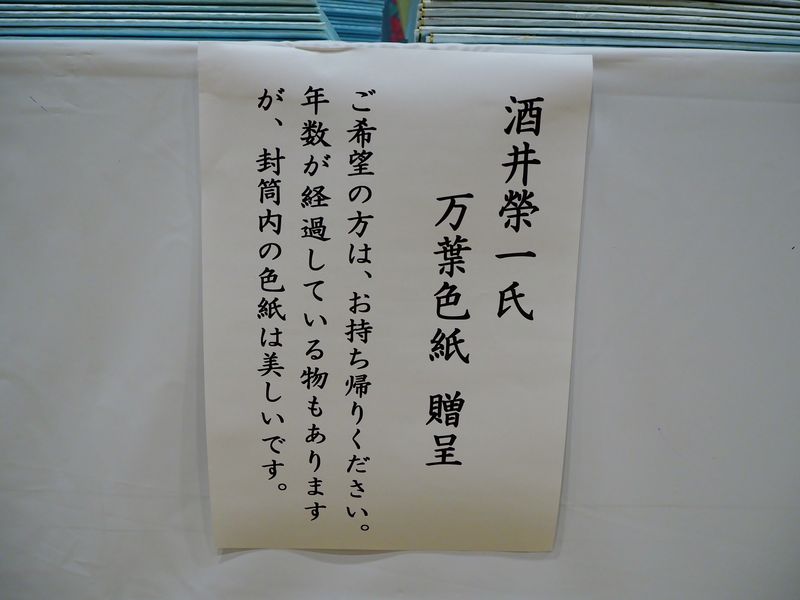 酒井榮一氏
万葉色紙　贈呈
ご希望の方は、お持ち帰りください。
年数が経過している物もあります
が、封筒内の色紙は美しいです。